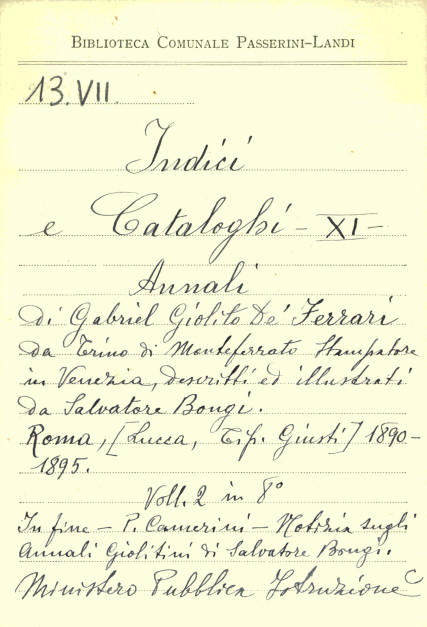 BIBLIOTECA COMUNALE PASSERINI-LANDI
13.VII.
Indici
e Cataloghi - XI -
Annali
di Gabriel Giolito De' Ferrari
da Trino di Monteferrato Stampatore
in Venezia, descritti ed illustrati
da Salvatore Bongi.
Roma, [Lucca, Tip. Giusti] 1890-
1895.
Voll. 2 in 8°
In fine - P. Camerini - Notizia sugli
Annali Giolitini di Salvatore Bongi.
Ministero Pubblica Istruzione